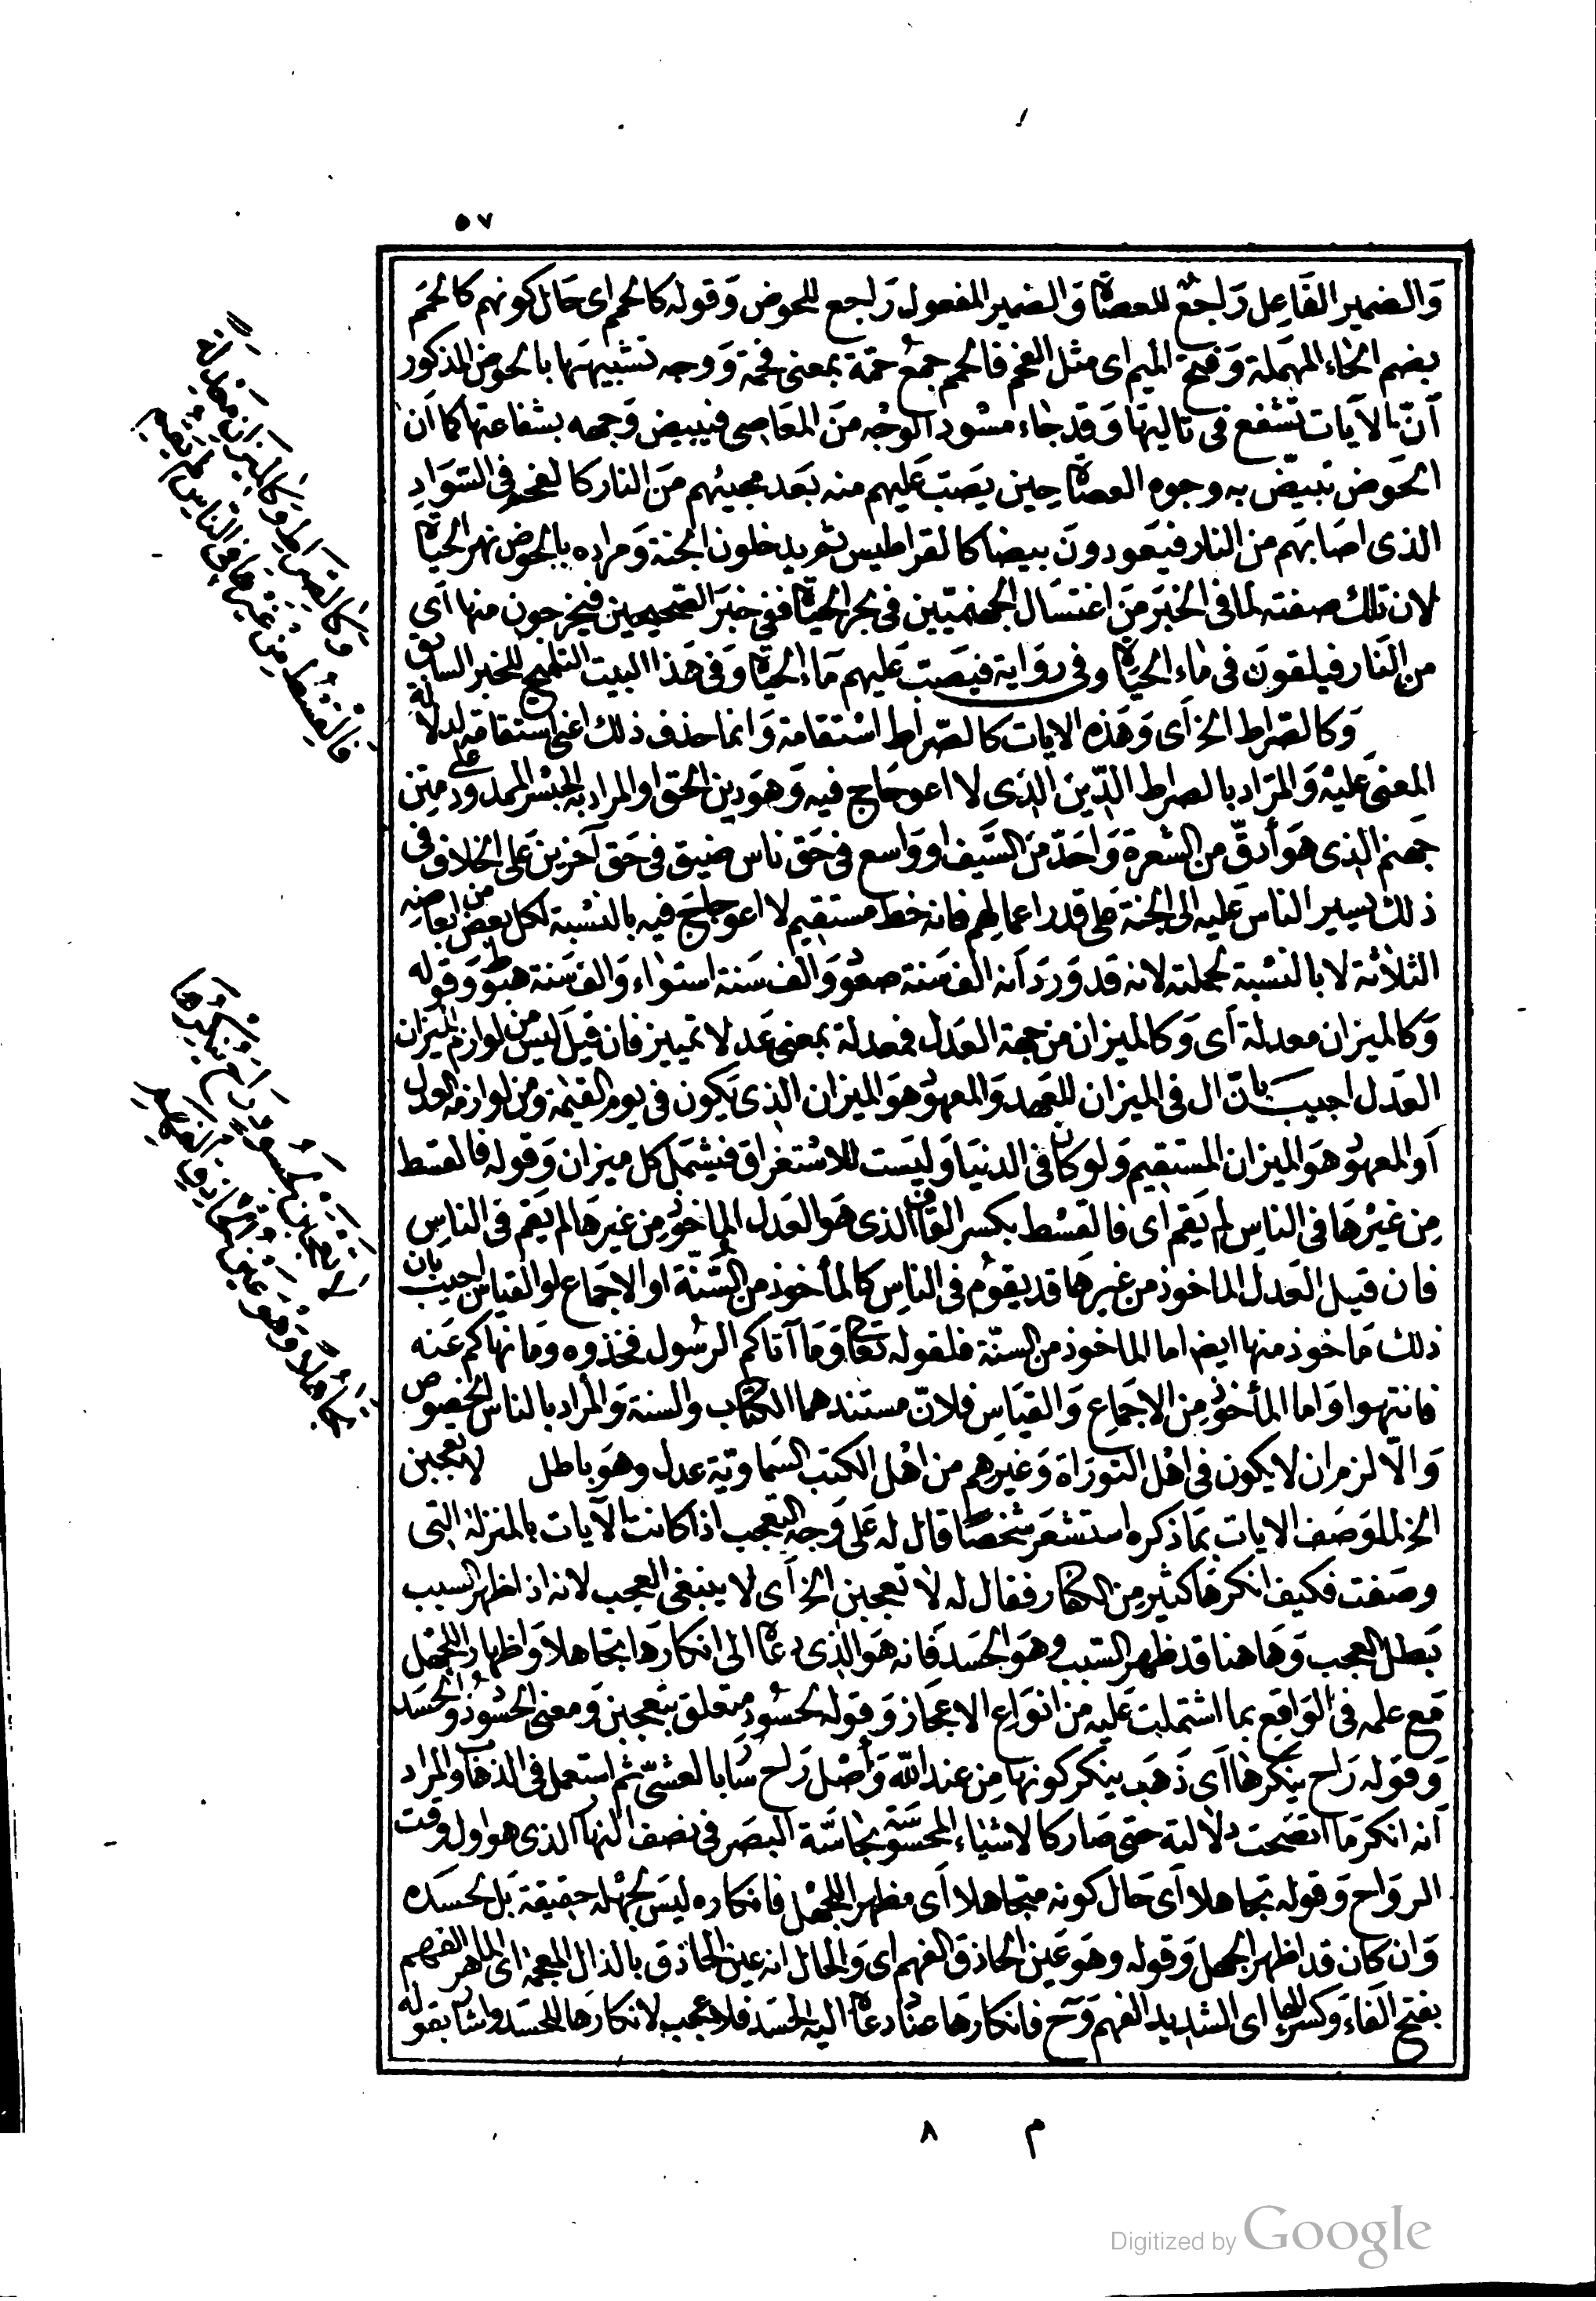 ٥٧
وَالضمير الفَاعِل رَاجعٌ للعصاة وَالضمير المفعول رَاجع للحوض وَقوله كالحمم اى حَال كونهم كالحمَم
بضم الحاء المهملة وَفتح الميم اى مثل الفحم فالحمم جمعُ حممة بمعنى فحمة وَوجه تشبيهها بالحوض المذكور
أنّ الآيات تشفع فى تاليها وَقد جاء مسْود الوجْه مَن المعَاصى فيبيض وَجهه بشفاعتها كما أن
الحَوض تبيضّ به وجوه العصاة حين يصَبّ عَليهم منه بَعد مجيئهم مَن النار كالفحم فى السّوَادِ
الذى اصَابهم من النار فيَعودون بيضا كالقراطيس ثم يدخلون الجنة وَمراده بالحوض نهر الحياة
لان تلك صفته لما فى الخبَر مَن اغتسَال الجهنميّين فى بحر الحياة ففى خبَر الصّحيحين فيخرجون منها أى
من النَار فيلقونَ فى مَاء الحيَاة وفى روَاية فيَصَبّ عَليهم مَاء الحيَاة وَفى هَذا البيت التلميح للخبر السابق
وَكالصّراط الخ أى وَهَذه الايات كالصّراط اسْتقامة وَانما حذف ذلك اعنى استقامة لدلالة
المعنى عَليْه وَالمرَاد بالصراط الدّين الذى لا اعوجَاج فيه وَهوَ دين الحق او المراد به الجسْر الممدود على متن
جهنم الذى هوَ أدقّ من الشعرة وَاحدّ مَن السَّيف او وَاسع فى حَق ناس ضيق فى حَق آخرين عَلى الخلاف فى
ذلك يسير الناس عَليه الى الجنة على قدر اعمالهم فانه خط مستقيم لا اعوجاجَ فيه بالنسْبة لكل بعض من ابعاضه
الثلاثة لا بالنسْبة لجملته لانه قد وَرد أنه الف سَنة صعُود وَالف سَنة استوَاء وَالف سَنة هبوط وَقوله
وَكالميزان معدلة أى وَكالميزان من جهة العَدل فمعدلة بمعنى عَدلا تمييز فان قيلَ ليس من لوازم الميزان
العَدل اجيبَ بأنّ ال فى الميزان للعَهد وَالمعهود هوَ الميزان الذى يَكون فى يوم القيٰمة ومن لوازمه العدل
أو المعهود هوَ الميزان المستقيم وَلو كان فى الدنيَا وَليسَت للاسْتغراق فيشمَل كل ميزان وَقوله فالقسط
مِن غيْرهَا فى الناسِ لم يَقم اى فالقسْط بكسر القاف الذى هوَ العَدل المأخوذ مِن غيرهَا لم يَقم فى الناسِ
فان قيل العَدل الماخوذ من غيرهَا قد يقوُم فى الناسِ كالمأخوذ من السُّنّة او الاجمَاع او القياس اجيبَ بان
ذلك مَاخوذ منها ايضا اما الماخوذ من السنّة فلقوله تعَالى وَمَا آتاكم الرسُول فخذوه وَمَا نهاكم عَنه
فانتهوا وَاما المأخوذ مِن الاجمَاع وَالقيَاسِ فلانّ مستندهما الكتاب والسنة وَالمراد بالناس الخصوص
وَالّا لزم ان لا يكون فى اهْل التورَاة وَغيرهم من اهْل الكتب السّماويّة عدل وهوَ باطل لا تعجبن
الخ لما وَصَف الايات بمَا ذكره استشعَر شخصًا قال له عَلى وَجه التعجب اذا كانت الآيات بالمنزلة التى
وصَفت فكيف انكرهَا كثير مِن الكفار فقال له لا تعجبن الخ أى لا ينبغى العجب لانه اذا ظهر السبب
بَطل العجب وَهَا هنا قد ظهر السَّبب وهوَ الحسَد فَانه هوَ الذى دعَاه الى انكارهَا تجاهلا وَاظهارا للجهْل
مَع علمه فى الوَاقِع بما اشتملت عَليه من انوَاع الاعجَاز وَقوله لحسُودٍ متعلق بتعجبن وَمعنى الحسُود ذو الحسَد
وَقوله رَاح ينكرهَا أى ذهَب ينكر كونها مِن عند الله وَأصْل رَاح سَار بالعشىّ ثم استعمل فى الذهاب وَالمراد
أنه انكر مَا اتضحَت دلالته حتى صَار كالاشيَاء المحسُوسَة بحاسَّة البصَر فى نصف النهار الذى هو اول وقت
الروَاح وَقوله تجاهلا أى حَال كونه متجاهلا أى مظهرا للجهْل فانكاره ليسَ لجهْله حقيقة بَل لحسَده
وَان كان قد اظهر الجهل وَقوله وهوَ عَين الحاذق الفهم اى وَالحال انه عين الحَاذق بالذال المعجمة اى الماهر الفهم
بفتح الفَاء وَكسر الهاء اى الشديد الفهم وَح فانكارهَا عنادا دعَاه اليه الحسَد فلا عجب لانكارهَا للحسَد واشار بقوله
وَكالصّراطِ وَكالميزان معدلةً
فالقسْط مِن غيرها فى الناس لم يقم
لا تعجبن لحسُودٍ راح ينكرها
تجاهلا وهوَ عَين الحاذق الفهم
م ٨
Digitized by Google